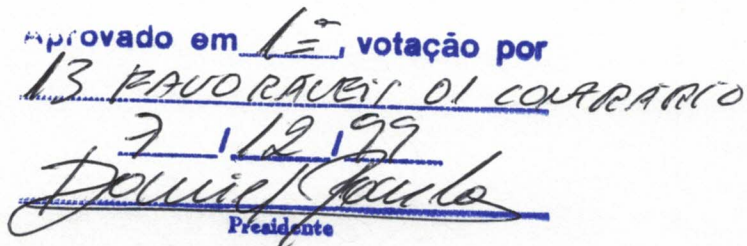 Aprovado em 1ª, votação por
13 FAVORÁVEIS 01 CONTRÁRIO
7 / 12 / 99
Daniel
Presidente